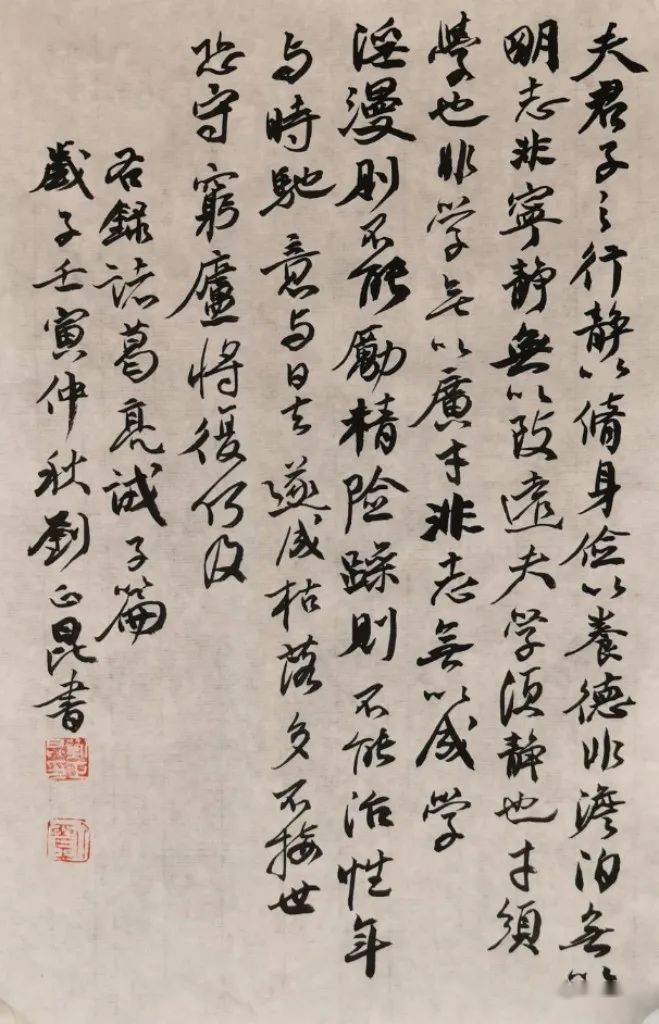 夫君子之行静以脩身俭以養德非澹泊無以
明志非寧静無以致遠夫学須静也才須
學也非学無以廣才非志無以成学
淫漫則不能勵精险躁則不能治性年
与時馳意与日去遂成枯落多不接世
悲守窮廬将復何及
右録诸葛亮诫子篇
歲子壬寅仲秋劉正昆書